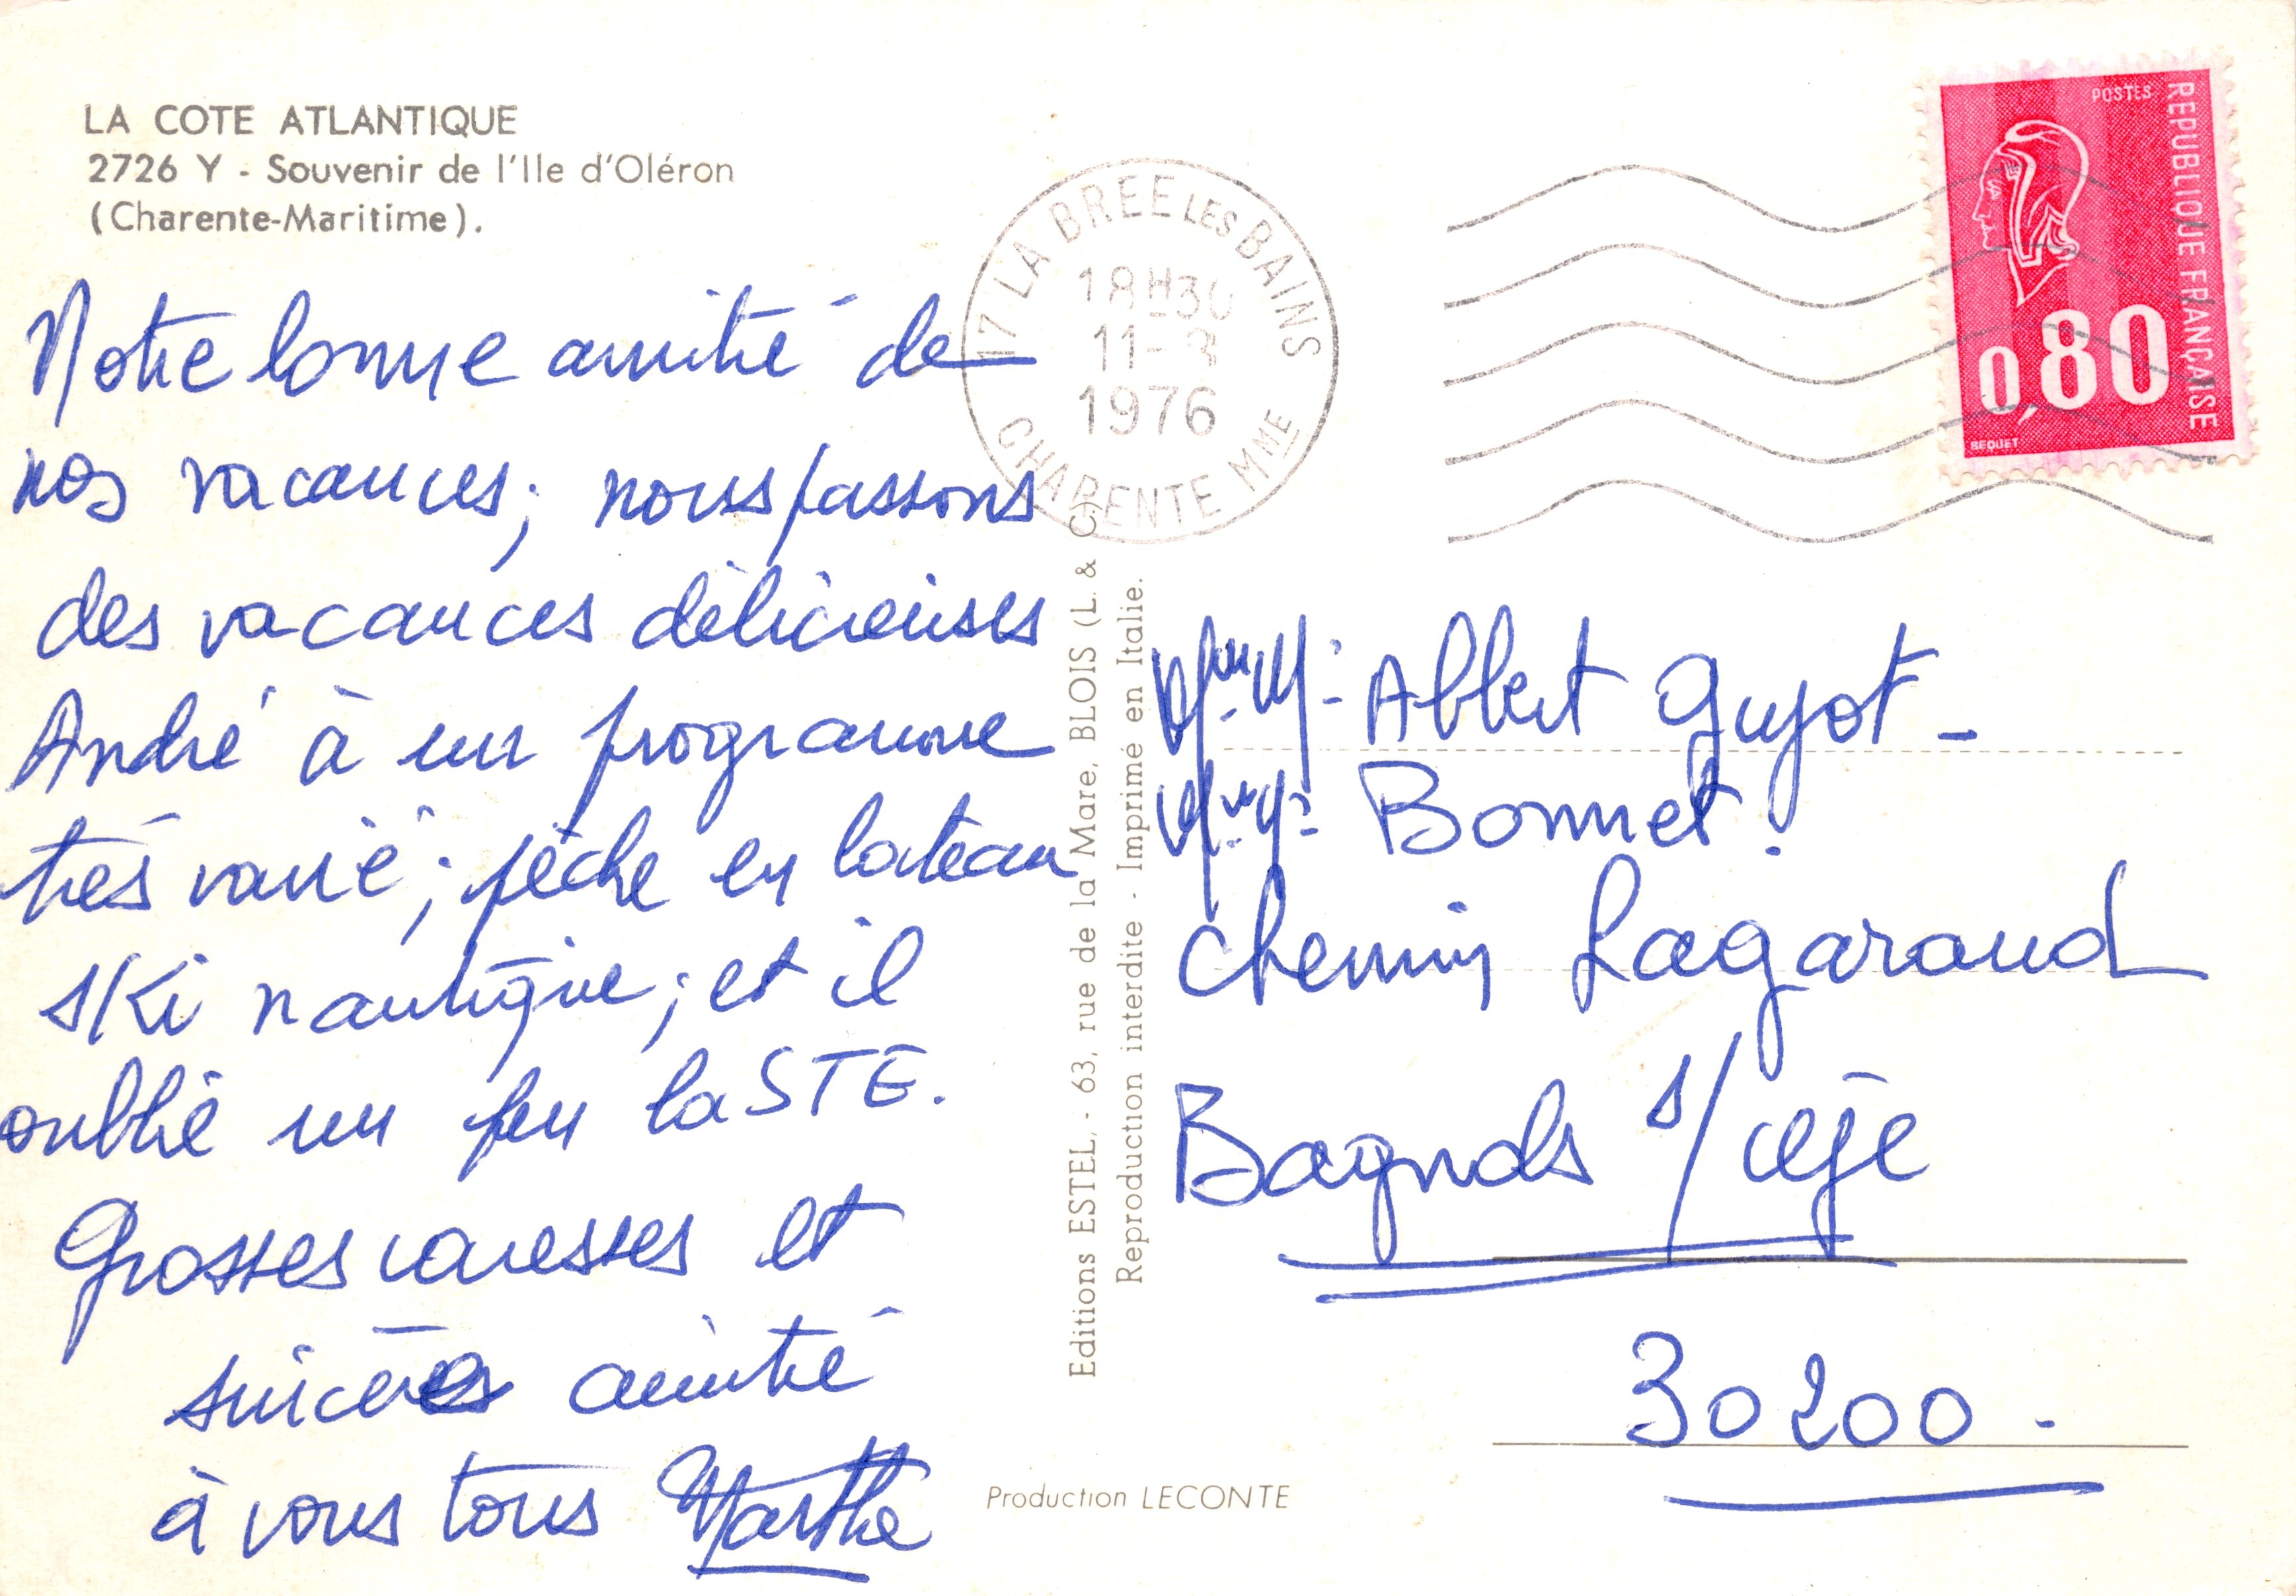 LA COTE ATLANTIQUE
2726 Y - Souvenir de l'Ile d'Oléron
(Charente-Maritime).
Notre bonne amitié de
nos vacances; nous passons
des vacances délicieuses
André à un programme
très varié; pêche en bateau
ski nautique; et il
oublié un peu la STE.
Grosses caresses et
sincères amitié
à vous tous Marthe
17 LA BREE LES BAINS
18H30
11-
1976
CHARENTE MME
POSTES
REPUBLIQUE FRANÇAISE
0,80
BEQUET
Editions ESTEL, - 63, rue de la Mare, BLOIS (L. & C.)
Reproduction interdite - Imprimé en Italie.
Mme M: Albert Guyot -
Mme M: Bonnet.
Chemin Lagaraud
Bagnols s/ cèje
30200 -
Production LECONTE